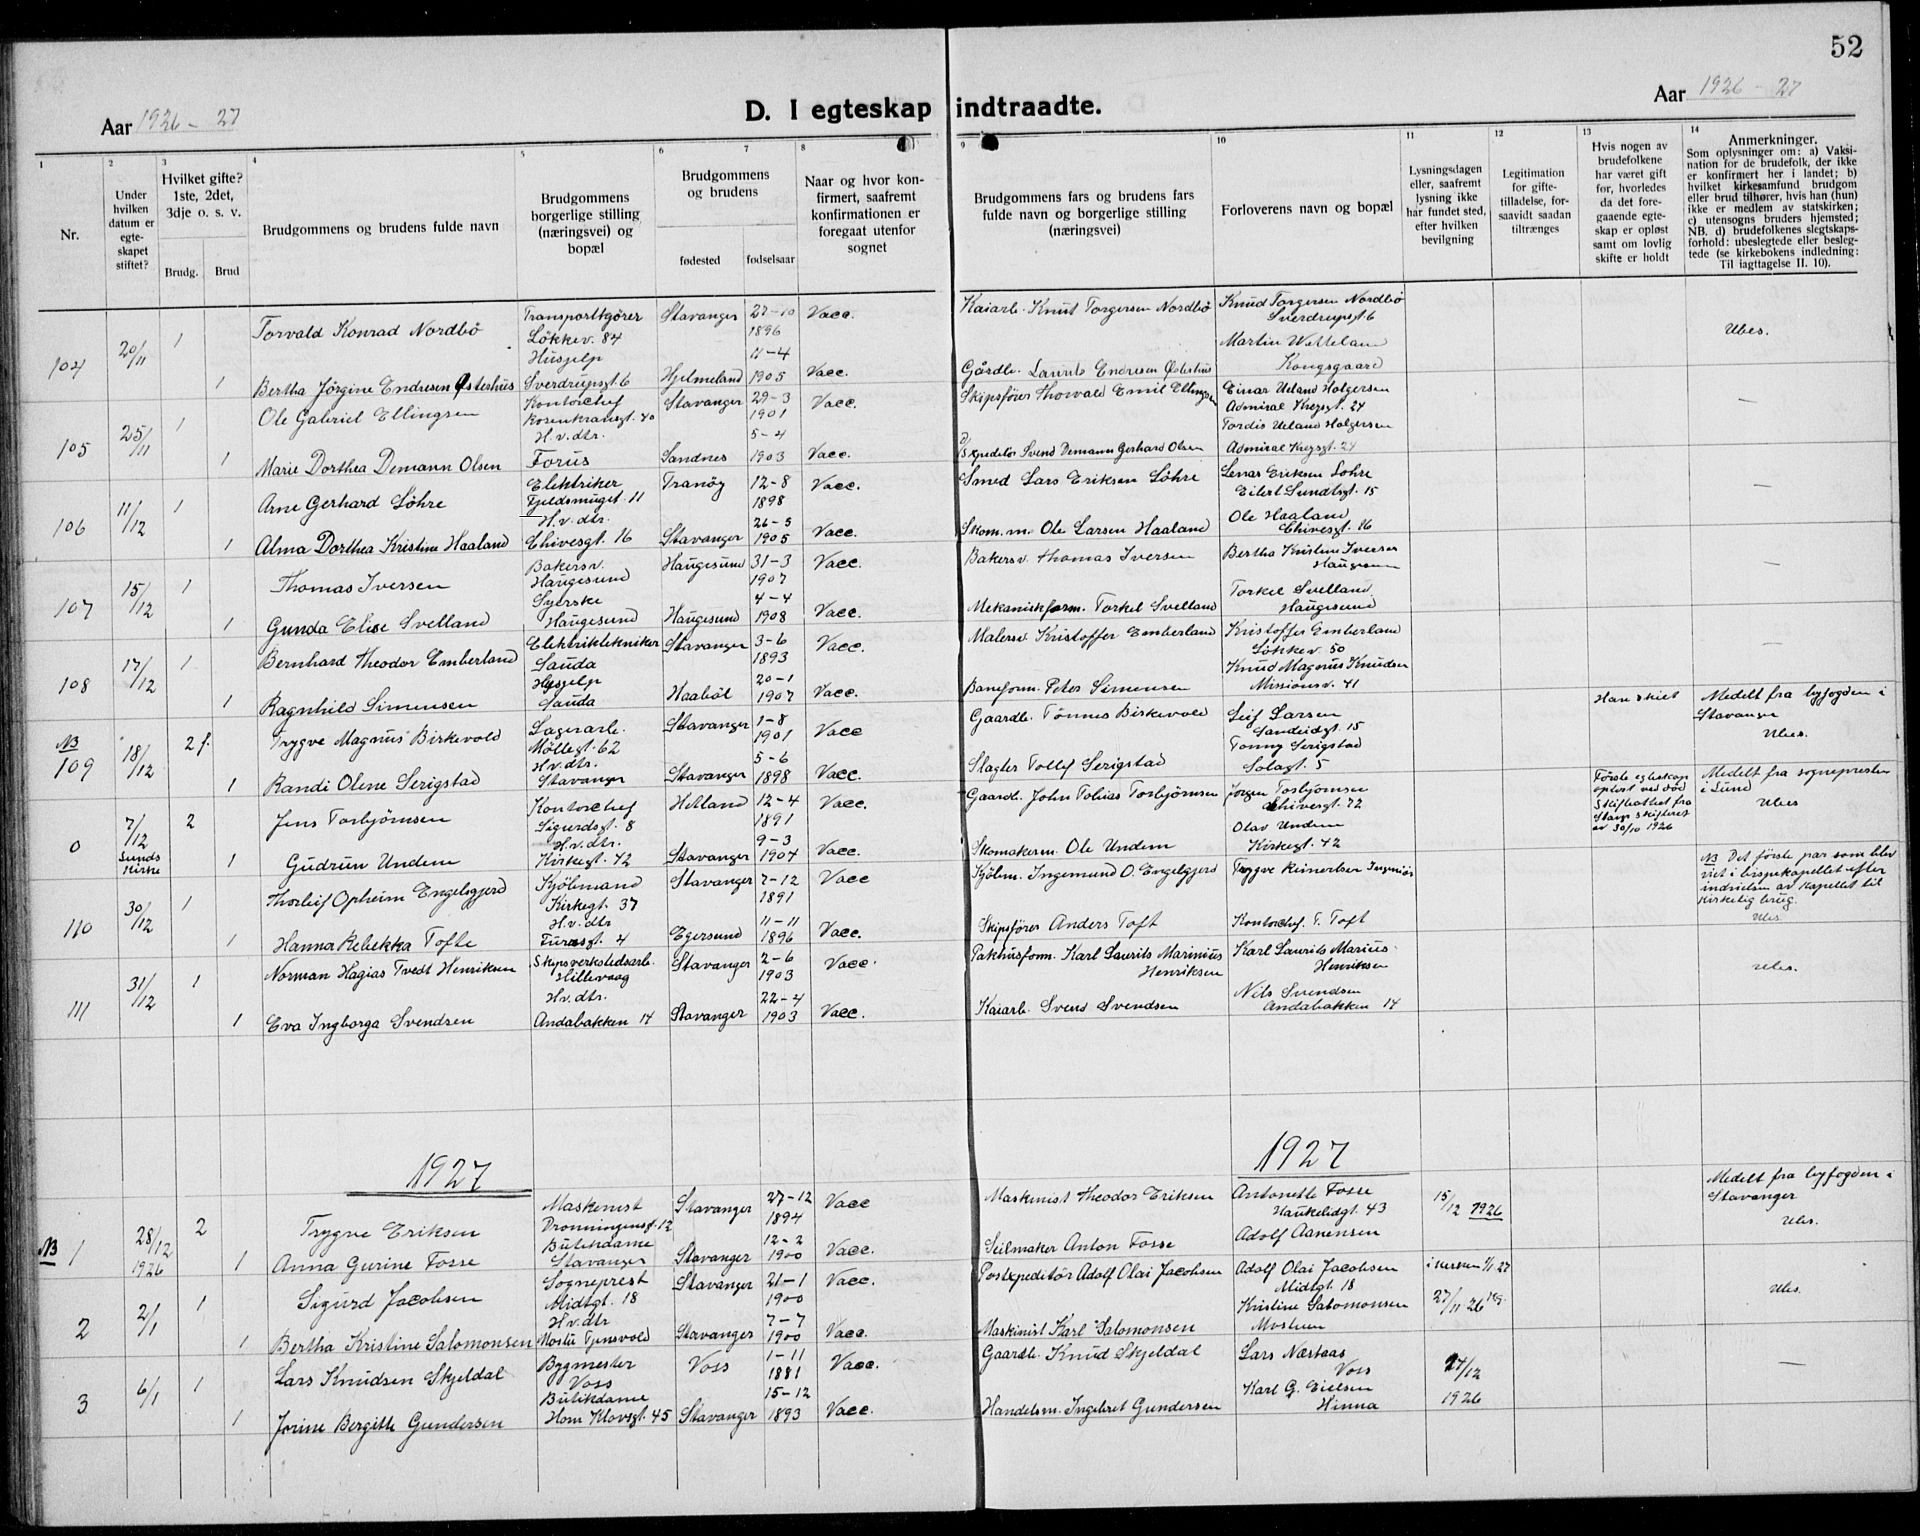 52
Aar 1926 - 27
D. I egteskap indtraadte.
Aar 1926 - 27
1
2
3
4
5
6
7
8
9
10
11
12
13
14
Nr.
Under
hvilken
datum er
egte-
skapet
stiftet?
Hvilket gifte?
1ste, 2det,
3dje o. s. v.
Brudg.
Brud
Brudgommens og brudens fulde navn
Brudgommens
borgerlige stilling
(næringsvei) og
bopæl
Brudgommens
og brudens
fødested
fødselsaar
Naar og hvor kon-
firmert, saafremt
konfirmationen er
foregaat utenfor
sognet
Brudgommens fars og brudens fars
fulde navn og borgerlige stilling
(næringsvei)
Forloverens navn og bopæl
Lysningsdagen
eller, saafremt
lysning ikke
har fundet sted,
efter hvilken
bevilgning
Legitimation
for gifte-
tilladelse, for-
saavidt saadan
tiltrænges
Hvis nogen av
brudefolkene
har været gift
før, hvorledes
da det fore-
gaaende egte-
skap er opløst
samt om lovlig
skifte er holdt
Anmerkninger.
Som oplysninger om: a) Vaksi-
nation for de brudefolk, der ikke
er konfirmert her i landet; b)
hvilket kirkesamfund brudgom
eller brud tilhører, hvis han (hun)
ikke er medlem av statskirken;
c) utensogns bruders hjemsted;
NB. d) brudefolkenes slegtskaps-
forhold: ubeslegtede eller besleg-
tede (se kirkebokens indledning:
Til iagttagelse II. 10).
104 20/11 1 Torvald Konrad Nordbö Transportkjörer Lökkev. 84 Stavanger 27-10 1896 Vacc. Kaiarb. Knut Torgersen Nordbö Knud Torgersen Nordbö Sverdrupsgt 6 Ubes.
1 Bertha Jörgine Endresen Østerhus Husjelp Sverdrupsgt. 6 Hjelmeland 11-4 1905 Vacc. Gårdb. Laurits Endresen Østerhus Martin Kongsgaard
105 25/11 1 Ole Gabriel Ellingsen Kontorchef Rosenkransgt. 40 Stavanger 29-3 1901 Vacc. Skipsförer Thorvald Emil Ellingsen Einar Ueland Holgersen Admiral Kregsgt. 24 —
1 Marie Dorthea Demann Olsen H. v. dtr. Forus Sandnes 5-4 1903 Vacc. Expeditör Svend Demann Gerhard Olsen Tordis Ueland Holgersen Admiral Kregsgt. 24
106 11/12 1 Arne Gerhard Löhre Elektriker Fjeldsmuget. 11 Tranöy 12-8 1898 Vacc. Smed Lars Eriksen Löhre Lenas Eriksen Lohre Eilert Sundtsgt. 15 —
1 Alma Dorthea Kristine Haaland H. v. dtr. Chivesgt. 16 Stavanger 26-5 1905 Vacc. Skom. m. Ole Larsen Haaland Ole Haaland Chivesgt. 16
107 15/12 1 Thomas Iversen Bakersv. Haugesund Haugesund 31-3 1907 Vacc. Bakersv. Thomas Iversen Bertha Kristine Iversen —
1 Gunda Elise Svelland Syerske Haugesund Haugesund 4-4 1908 Vacc. Mekaniskform. Torkel Svelland Torkel Svelland Haugesund
108 17/12 1 Bernhard Theodor Emberland Elektriktekniker Sauda Stavanger 3-6 1893 Vacc. Malersv. Kristoffer Emberland Kristoffer Emberland Lökkev. 50 —
1 Ragnhild Simensen Husjelp Sauda Haaböl 20-1 1907 Vacc. Baneform. Peter Simensen Knud Magnus Knudsen Missionsv. 41
NB 109 18/12 2 f. Trygve Magnus Birkevold Lagerarb. Möllegt. 62 Stavanger 1-8 1901 Vacc Gaardb. Tönnes Birkevold Leif Larsen Sandeidgt. 15 Han skilt Medelt fra byfogden i Stavanger Ubes.
1 Randi Olene Serigstad H. v. dtr. Stavanger Stavanger 5-6 1898 Vacc. Slagter Tollef Serigstad Tonny Serigstad Solagt. 5
0 7/12 Lunds Kirke 2 Jens Torbjörnsen Kontorchef Sigurdsgt. 8 Hetland 12-4 1891 Vacc. Gaardb. John Tobias Torbjörnsen Jörgen Torbjörnsen Chivesgt. 72 Förste egteskap oplöst ved död Skifteattest fra Stavg. skifteret av 30/10 1926 Medelt fra sogneprester i Lund Ubes
1 Gudrun Undem H. v. dtr. Kirkegt. 42 Stavanger 9-3 1904 Vacc. Skomakerm. Ole Undem Olav Undem Kirkegt. 42
110 30/12 1 Thorleif Opheim Engelsgjerd Kjöbmand Kirkegt. 37 Stavanger 7-12 1891 Vacc Kjöbm. Ingemund O. Engelgjerd Trygve Reimertsen Ingeniör NB Det förste par som blev viet i bispekapellet efter indvielsen av kapellet til kirkelig brug. Ubes.
1 Hanna Rebekka Tofte H. v. dtr Furasgt. 4 Egersund 11-11 1896 Vacc. Skipsförer Anders Toft Kontorchef. T. Toft
111 31/12 1 Norman Hagias Tvedt Henriksen Skipsverkstedsarb. Hillevaag Stavanger 2-6 1903 Vacc. Pakhusform. Karl Laurits Marinius Henriksen Karl Laurits Marius Henriksen Ubes.
1 Eva Ingborga Svendsen H. v. dtr. Andabakken 14 Stavanger 22-4 1903 Vacc. Kaiarb. Svend Svendsen Nils Svendsen Andabakken 14
1927
1927
NB 1 28/12 1926 2 Trygve Eriksen Maskinist Dronningensgt. 12 Stavanger 27-12 1894 Vacc Maskinist Theodor Eriksen Antonette Fosse Haukelidgt. 43 15/12 1926 Medelt fra byfogden i Stavanger Ubes.
1 Anna Gurine Fosse Butikdame Stavanger Stavanger 12-2 1900 Vacc. Seilmaker Anton Fosse Adolf Aanensen
2 2/1 1 Sigurd Jacobsen Sogneprest Midtgt. 18 Stavanger 21-1 1900 Vacc. Postexpeditör Adolf Olai Jacobsen Adolf Olai Jacobsen Midtgt. 18 1/1 27 Ubes.
1 Bertha Kristine Salomonsen H. v. dtr Stavanger 7-7 1900 Vacc. Maskinist Karl Salomonsen Kristine Salomonsen 27/11 26
3 6/1 1 Lars Knudsen Skjeldal Bygmester Voss Voss 1-11 1881 Vacc. Gaardb. Knud Skjeldal Lars Næstaas Voss 24/12 1926 —
1 Jorine Bergitte Gundersen Butikdame Hom Klovsgt. 45 Stavanger 15-12 1893 Vacc. Handelsm. Ingebret Gundersen Karl G. Eielsen Hinna